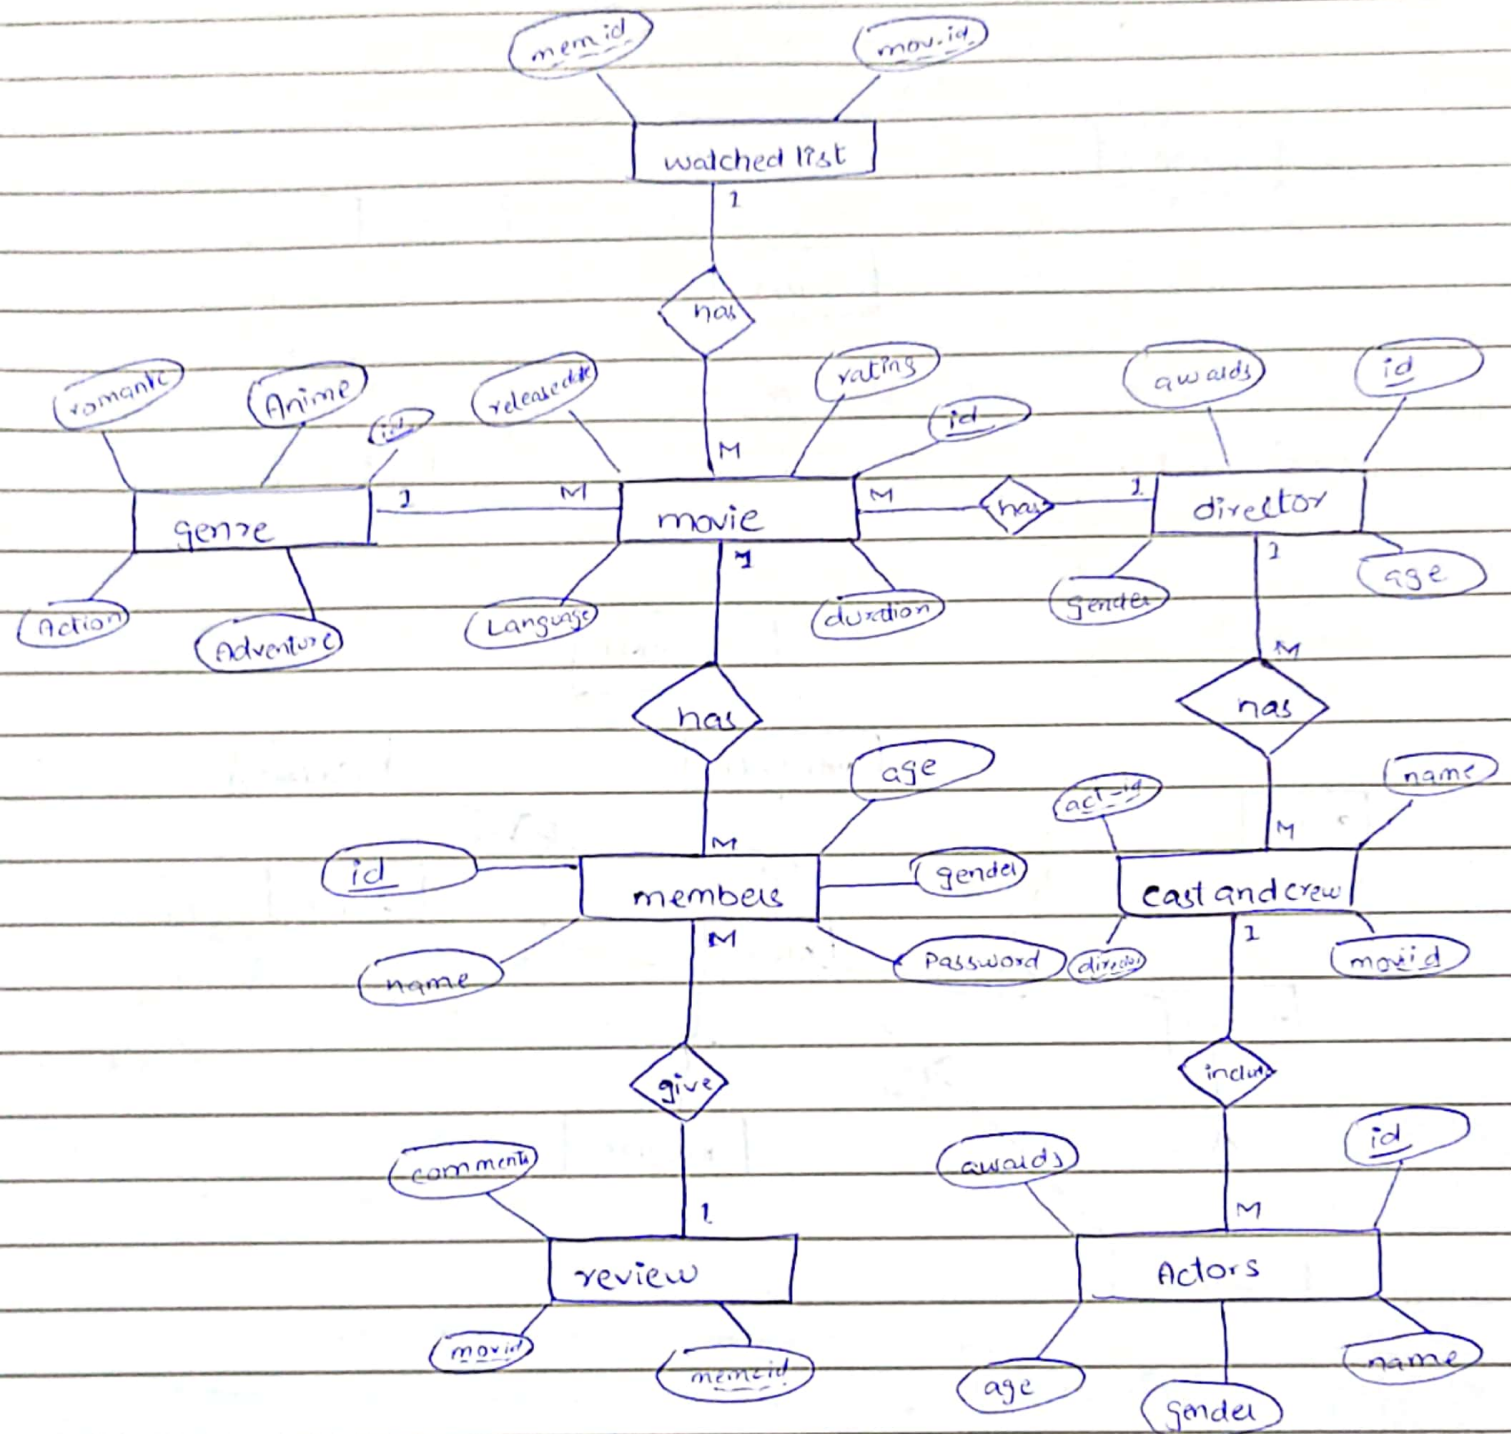 memid mov.id
watched list
1
has
romantic Anime id releasedate rating id awards id
M
genre 1 M movie M has 1 director
Action Adventure Language 1 duration gender 1 age
M
has has
age act-id name
id M gender M
members cast and crew
name M Password director 1 movid
give includ
comments awards id
1 M
review Actors
movid memid age gender name